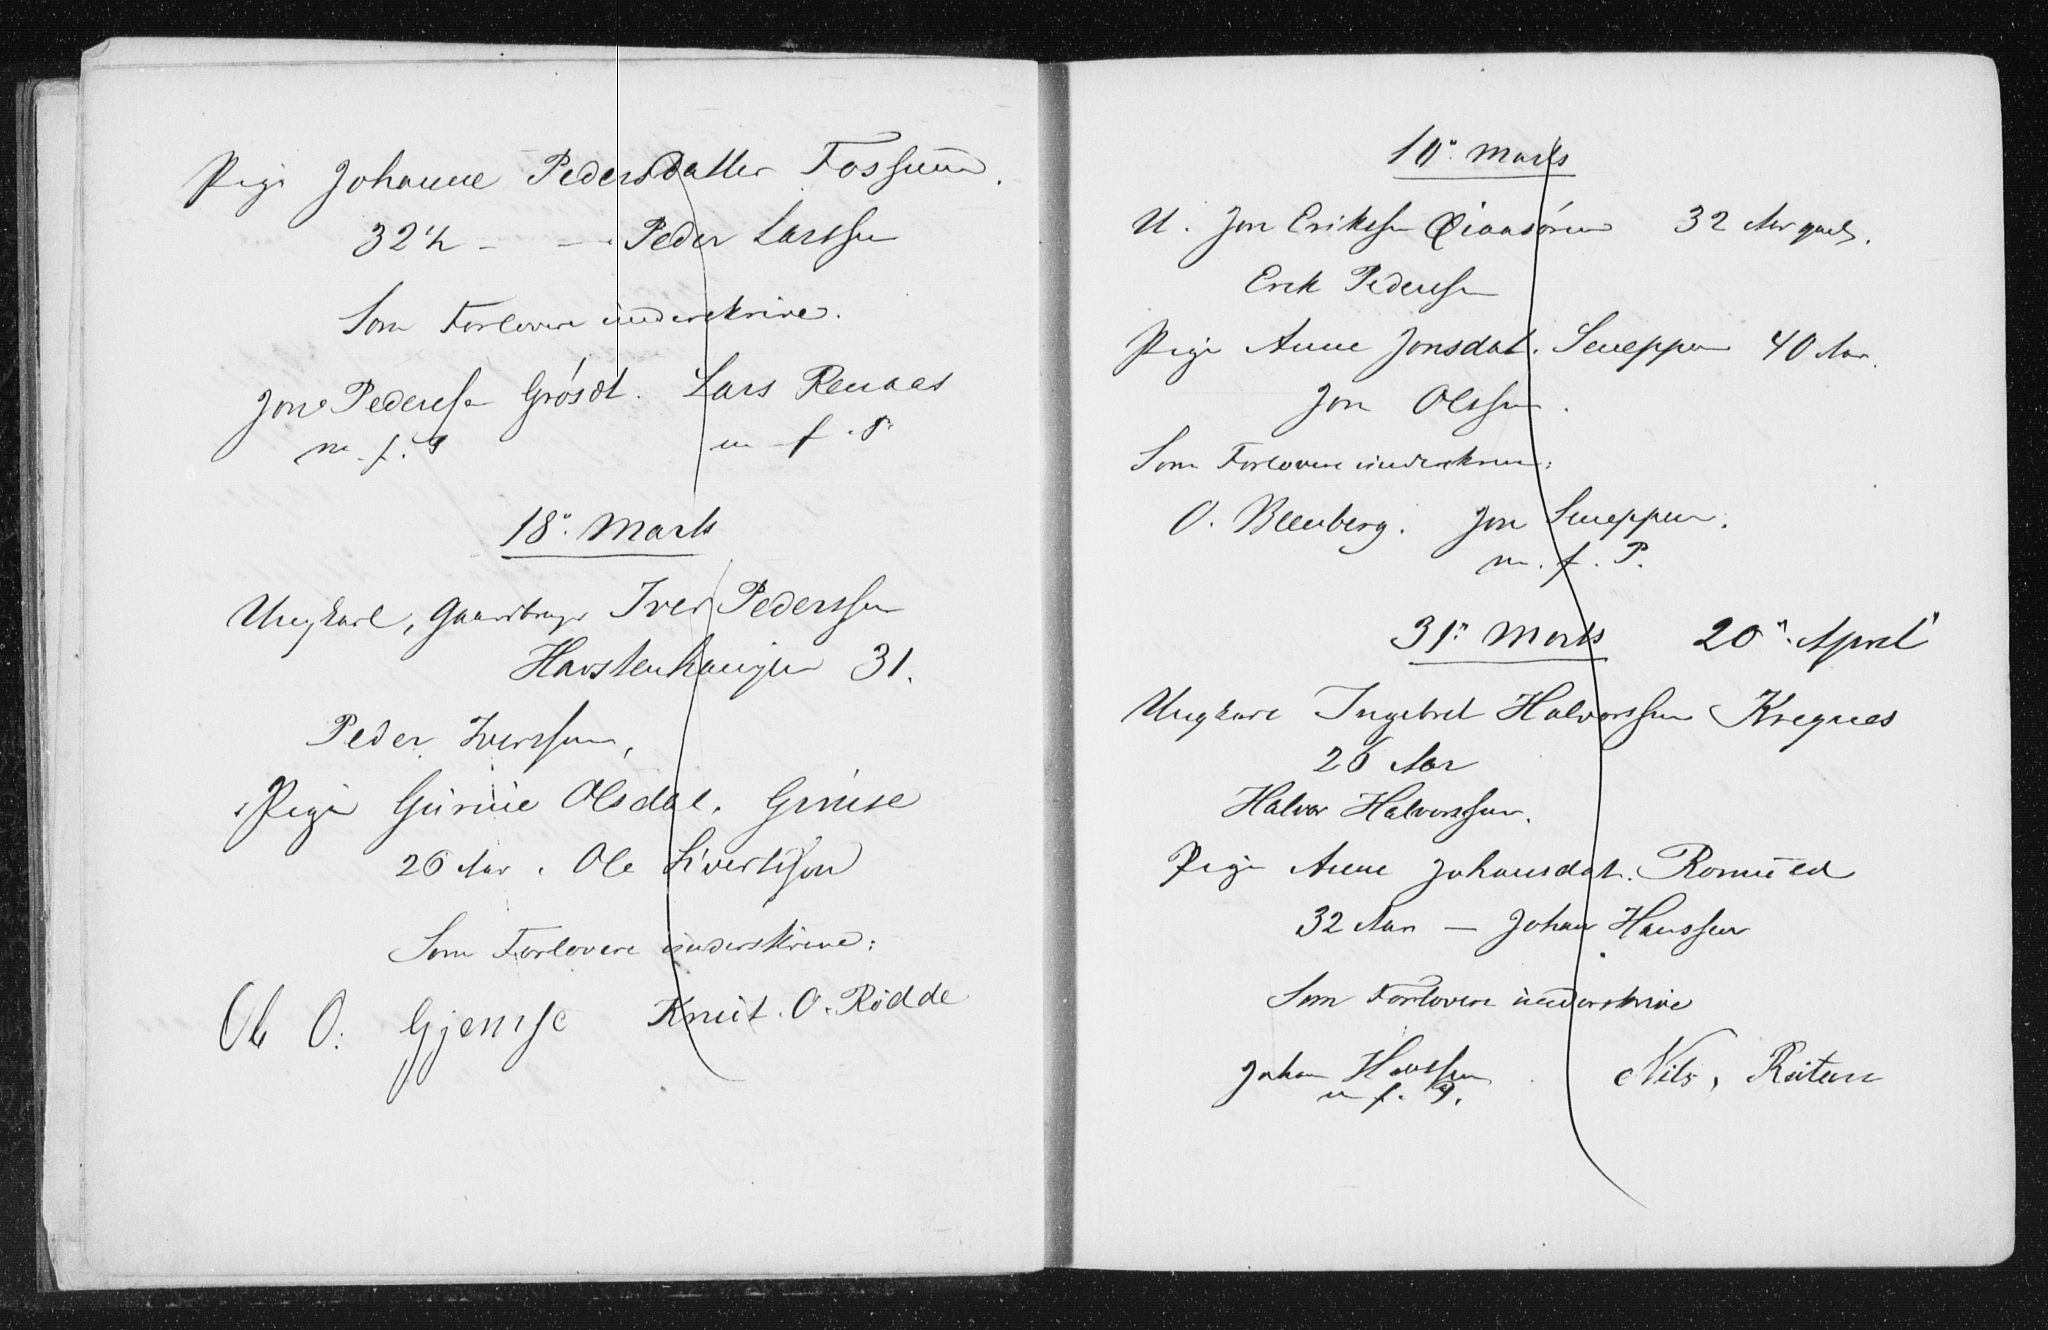 Pige Johanne Pedersdatter Fossum.
32½ — — Peder Larssen
Som Forlovere underskrive.
Jon Pedersen Grøsdt. Lars Renaas
m. f. P m. f. P
18de Marts
Ungkarl, Gaardbrugr Iver Pederssen
Havstenhaugen 31.
Peder Iverssen,
Pige Gurine Olsdat. Gimse
26 Aar. Ole Sivertsson
Som Forlovere underskrive:
Ole O: Gjemse Knut. O. Rødde
10de Marts
U. Jon Erikssen 32 Aar gml.
Erik Pederssen
Pige Anne Jonsdat. Sneppen 40 Aar.
Jon Olssen.
Som Forlovere underskrive:
O. Bleuberg. Jon Sneppen.
m. f. P.
31te Marts 20de April
Ungkarl Ingebret Halvorssen Kregnes
26 Aar
Halvor Halvorssen.
Pige Anne Johansdat. Romuld
32 Aar — Johan Hanssen
Som Forlovere underskrive
Johan Hanssen Nils, Reitan
m f. P.